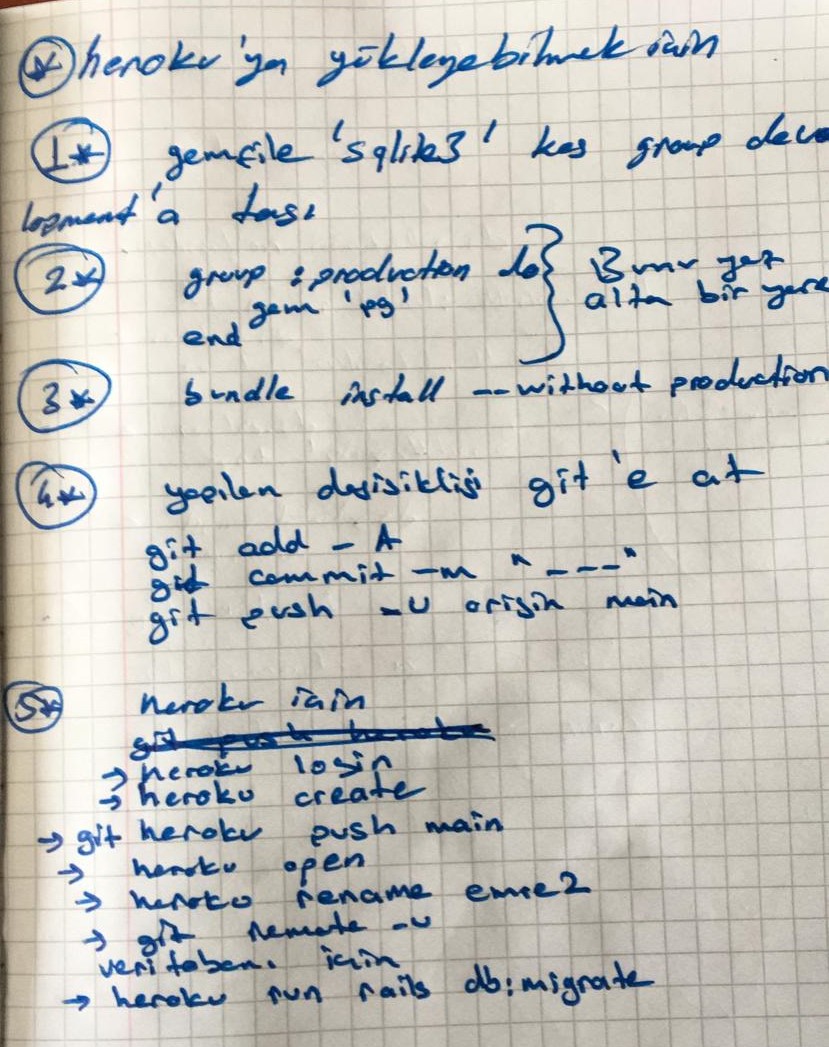 * heroku'ya yükleyebilmek için
1* gemfile 'sqlite3' kes group deve
lopment'a taşı
2* group :production do } Bunu yaz
gem 'pg' alta bir yere
end
3* bundle install --without production
4* yapılan değişikliği git'e at
git add -A
git commit -m "---"
git push -u origin main
5* heroku için
git push heroku
→ heroku login
→ heroku create
→ git heroku push main
→ heroku open
→ heroku rename emre2
→ git remote -v
veritabanı için
→ heroku run rails db:migrate